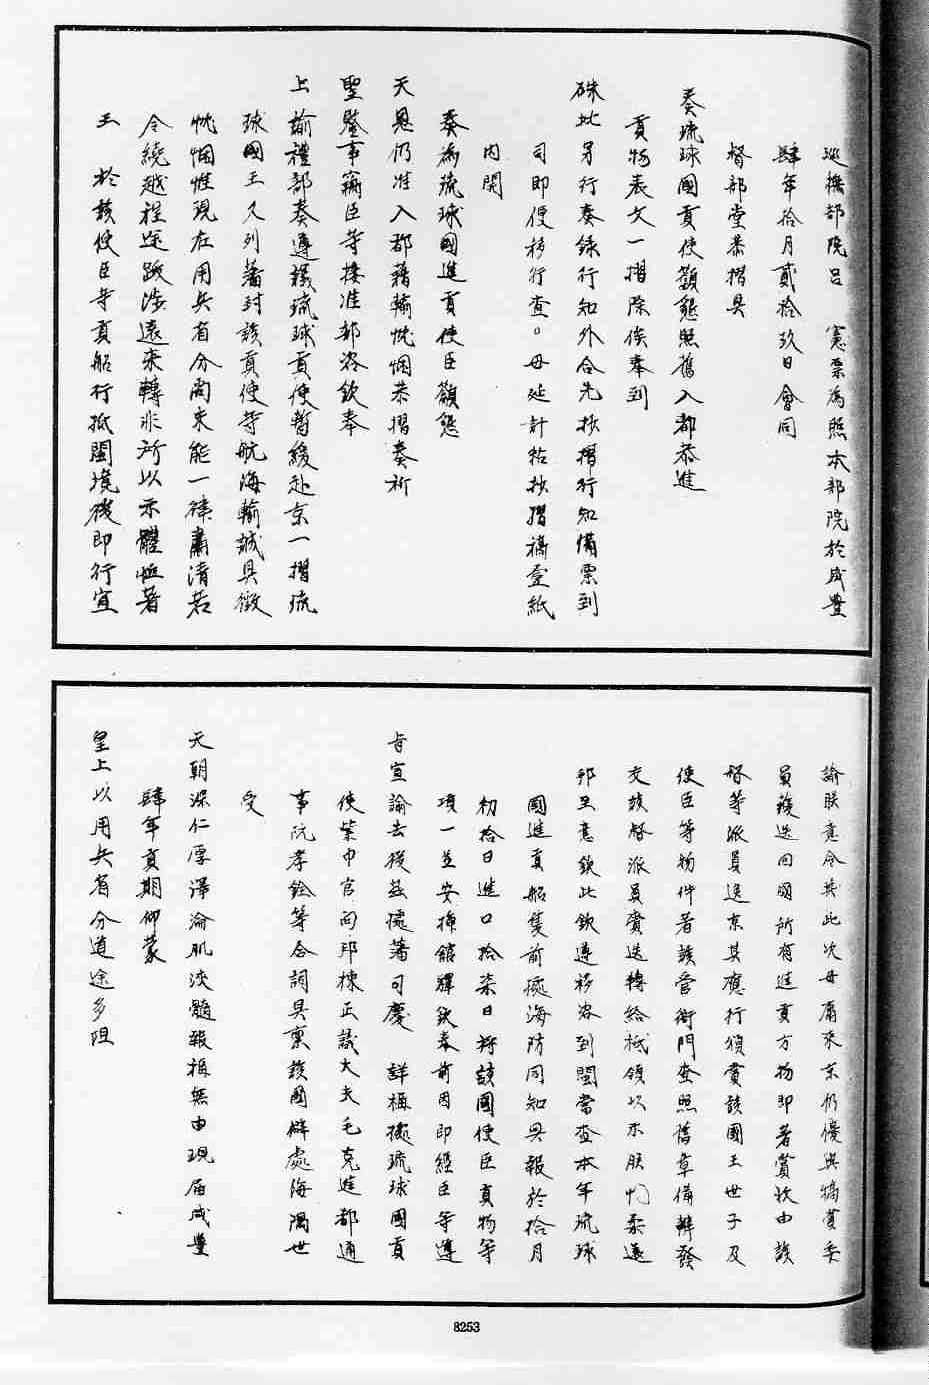 巡撫部院呂　憲票為照本部院於咸豐
肆年拾月貳拾玖日會同
督部堂恭摺具
奏琉球國貢使籲懇照舊入都恭進
貢物表文一摺除俟奉到
硃批另行恭錄行知外合先抄摺行知備票到
司即便移行查。毋延計粘抄摺稿壹紙
內開
奏為琉球國進貢使臣籲懇
天恩仍准入都藉輸忱悃恭摺奏祈
聖鑒事竊臣等接准部咨欽奉
上諭禮部奏遵議琉球貢使暫緩赴京一摺琉
球國王久列藩封該貢使等航海輸誠具徵
忱悃惟現在用兵省分尚未能一律肅清若
令繞越程途跋涉遠來轉非所以示體恤著
王　於該使臣等貢船行抵閩境後即行宣
諭朕意令其此次毋庸來京仍優與犒賞委
員護送回國所有進貢方物即著賞收由該
督等派員送京其應行頒賞該國王世子及
使臣等物件著該管衙門查照舊章備辦發
交該督派員齎送轉給祗領以示朕懷柔遠
邦至意欽此欽遵移咨到閩當查本年琉球
國進貢船隻前據海防同知具報於拾月
初拾日進口拾柒日將該國使臣貢物等
項一並安插館驛欽奉前因即經臣等遵
旨宣諭去後茲據藩司慶　詳稱據琉球國貢
使紫巾官向邦棟正議大夫毛克進都通
事阮孝銓等合詞具稟該國僻處海隅世
受
天朝深仁厚澤淪肌浹髓報稱無由現屆咸豐
肆年貢期仰蒙
皇上以用兵省分道途多阻
8253